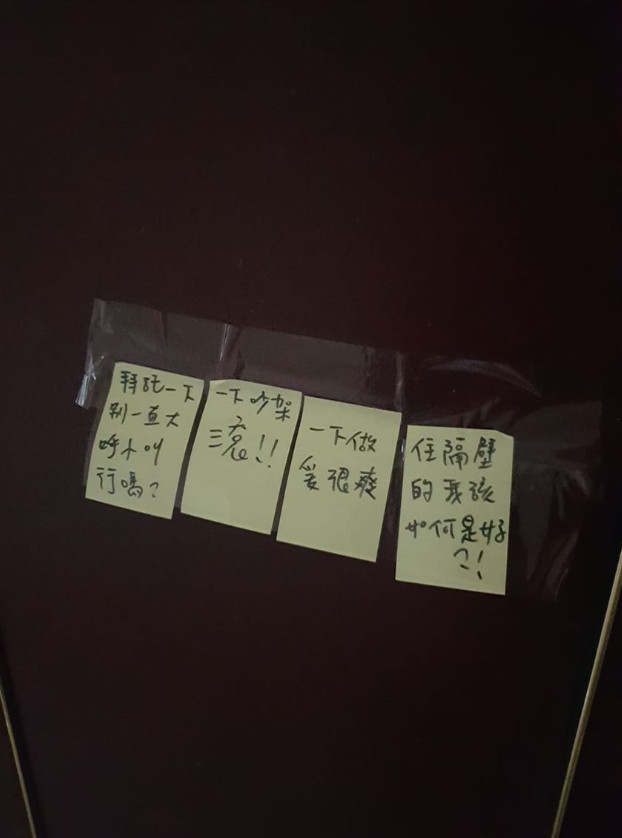 拜託一下
別一直大
呼小叫
行嗎?
一下吵架
滾!!
一下做
爱很爽
住隔壁
的我該
如何是好
?!